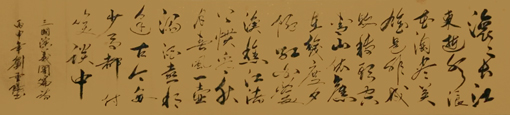 滚々长江
東逝水浪
花淘尽英
雄是非成
败转頭空
青山依舊
在幾度夕
阳红白发
渔樵江渚
上惯看秋
月春風一壶
濁酒喜相
逢古今多
少事都付
笑談中
三國演義開篇詞
丙申年劉